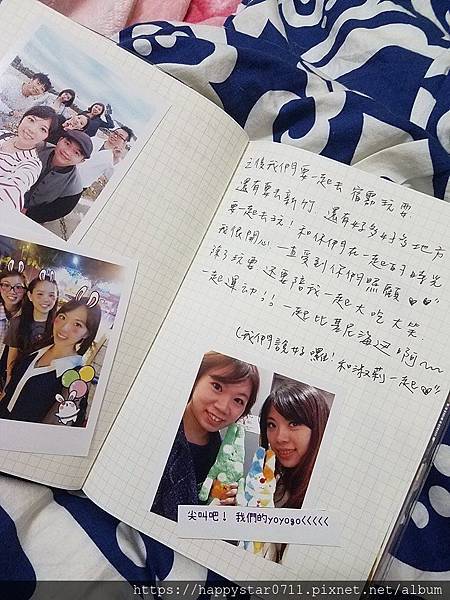 之後我們要一起去 宿霧玩耍
還有要去新竹 還有好多好多地方
要一起去玩! 和你們在一起的時光
我很開心 一直受到你們照顧 ♥♥"
除了玩耍 還要陪我一起大吃大笑
一起運動!! 一起比基尼海邊啊~~
(我們說好囉! 和淑莉一起♥"
尖叫吧! 我們的yoyogo<<<<<
https://happystar0711.pixnet.net/album